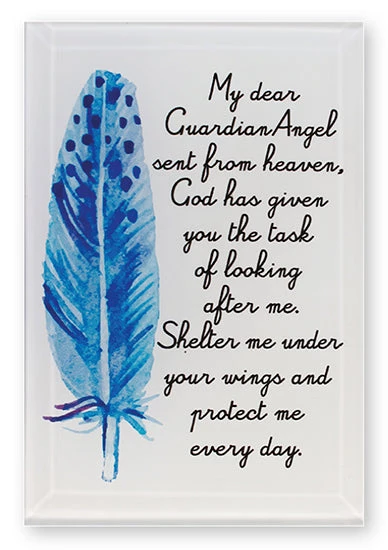 My dear
Guardian Angel
sent from heaven,
God has given
you the task
of looking
after me.
Shelter me under
your wings and
protect me
every day.